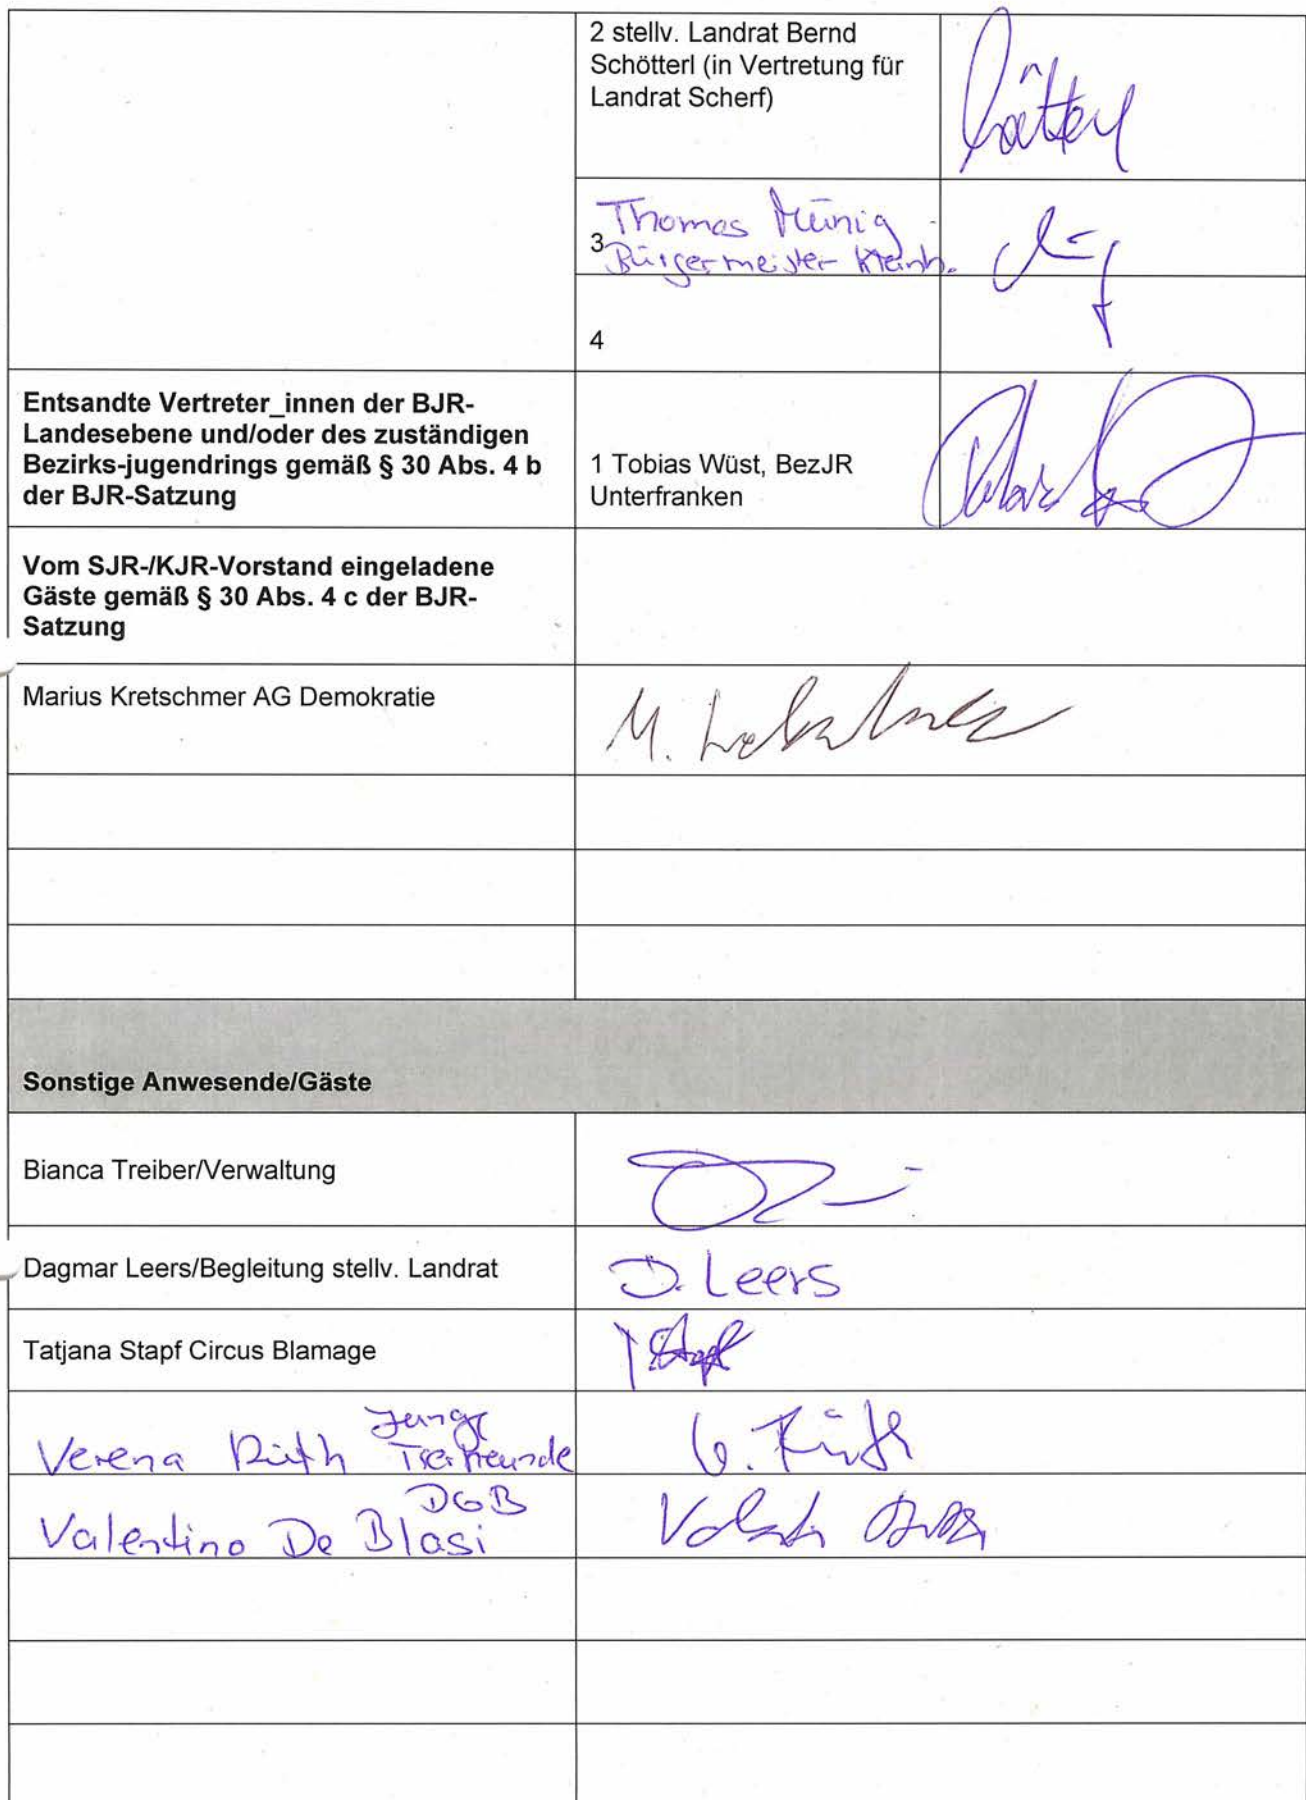 2 stellv. Landrat Bernd
Schötterl (in Vertretung für
Landrat Scherf)
Thomas Münig
3
Bürgermeister Kleinh.
4
Entsandte Vertreter_innen der BJR-
Landesebene und/oder des zuständigen
Bezirks-jugendrings gemäß § 30 Abs. 4 b
der BJR-Satzung
1 Tobias Wüst, BezJR
Unterfranken
Vom SJR-/KJR-Vorstand eingeladene
Gäste gemäß § 30 Abs. 4 c der BJR-
Satzung
Marius Kretschmer AG Demokratie
M.
Sonstige Anwesende/Gäste
Bianca Treiber/Verwaltung
Dagmar Leers/Begleitung stellv. Landrat
D. Leers
Tatjana Stapf Circus Blamage
Stapf
Verena Rüth Junge
Tierfreunde
V. Rüth
Valentino De Blasi DGB